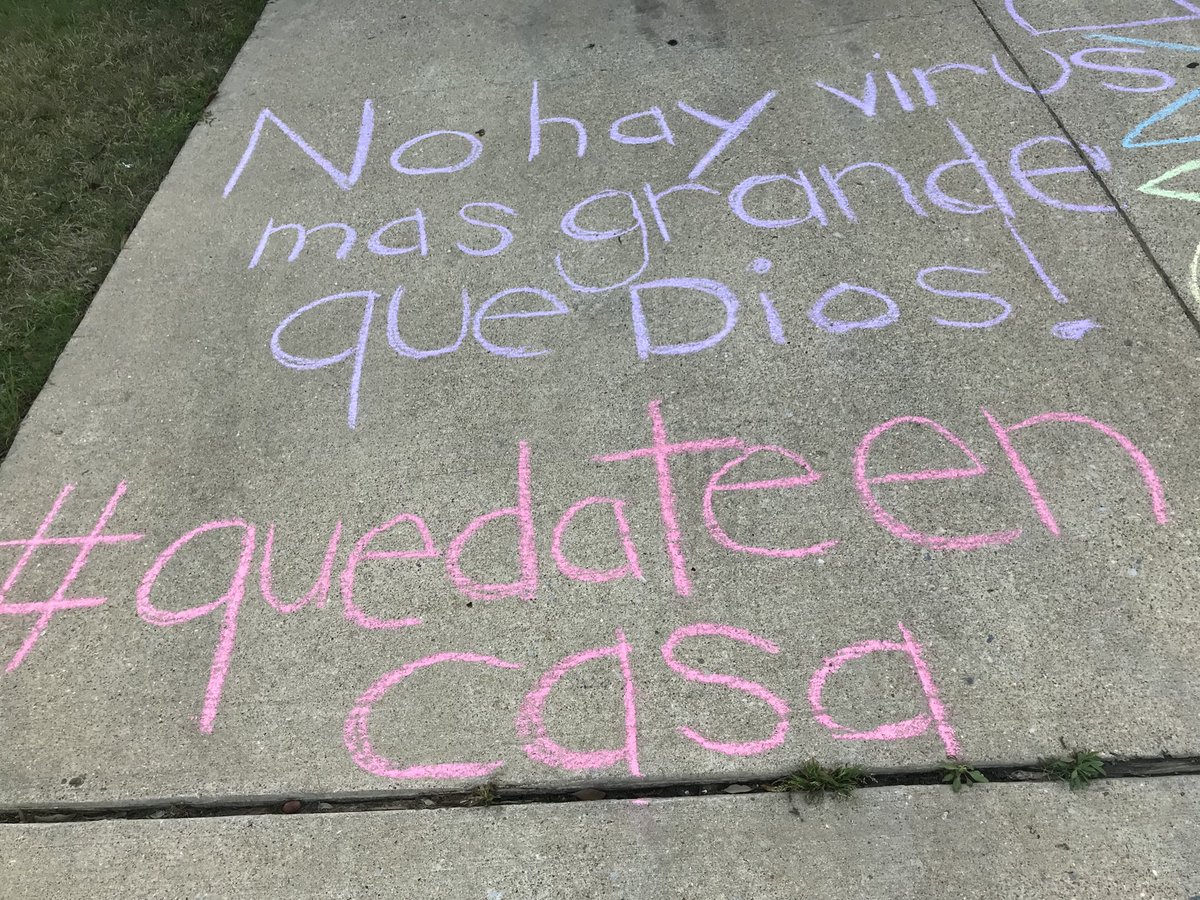 No hay virus
mas grande
que Dios!
#quedateen
casa